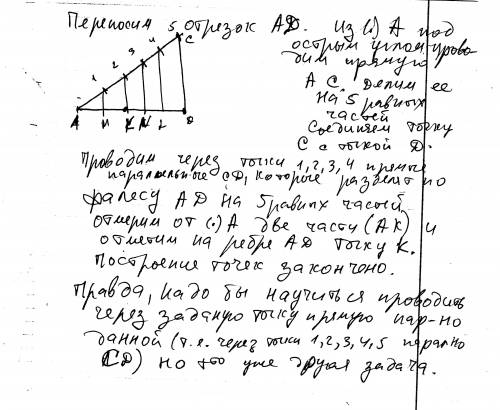 Переносим отрезок AD. Из (.) А под
острым углом прово-
дим прямую
AC. Делим ее
на 5 равных
частей
Соединяем точку
C с точкой D.
1 2 3 4 5 C
A M K N L D
Проводим через точки 1,2,3,4 прямые
параллельные CD, которые разделят по
Фалесу AD на 5 равных частей
отмерим от (.) А две части (AK) и
отметим на ребре AD точку K.
Построение точек закончено.
Правда, надо бы научиться проводить
через заданую точку прямую пар-но
данной (т.е. через точки 1,2,3,4,5 парално
CD) но это уже другая задача.